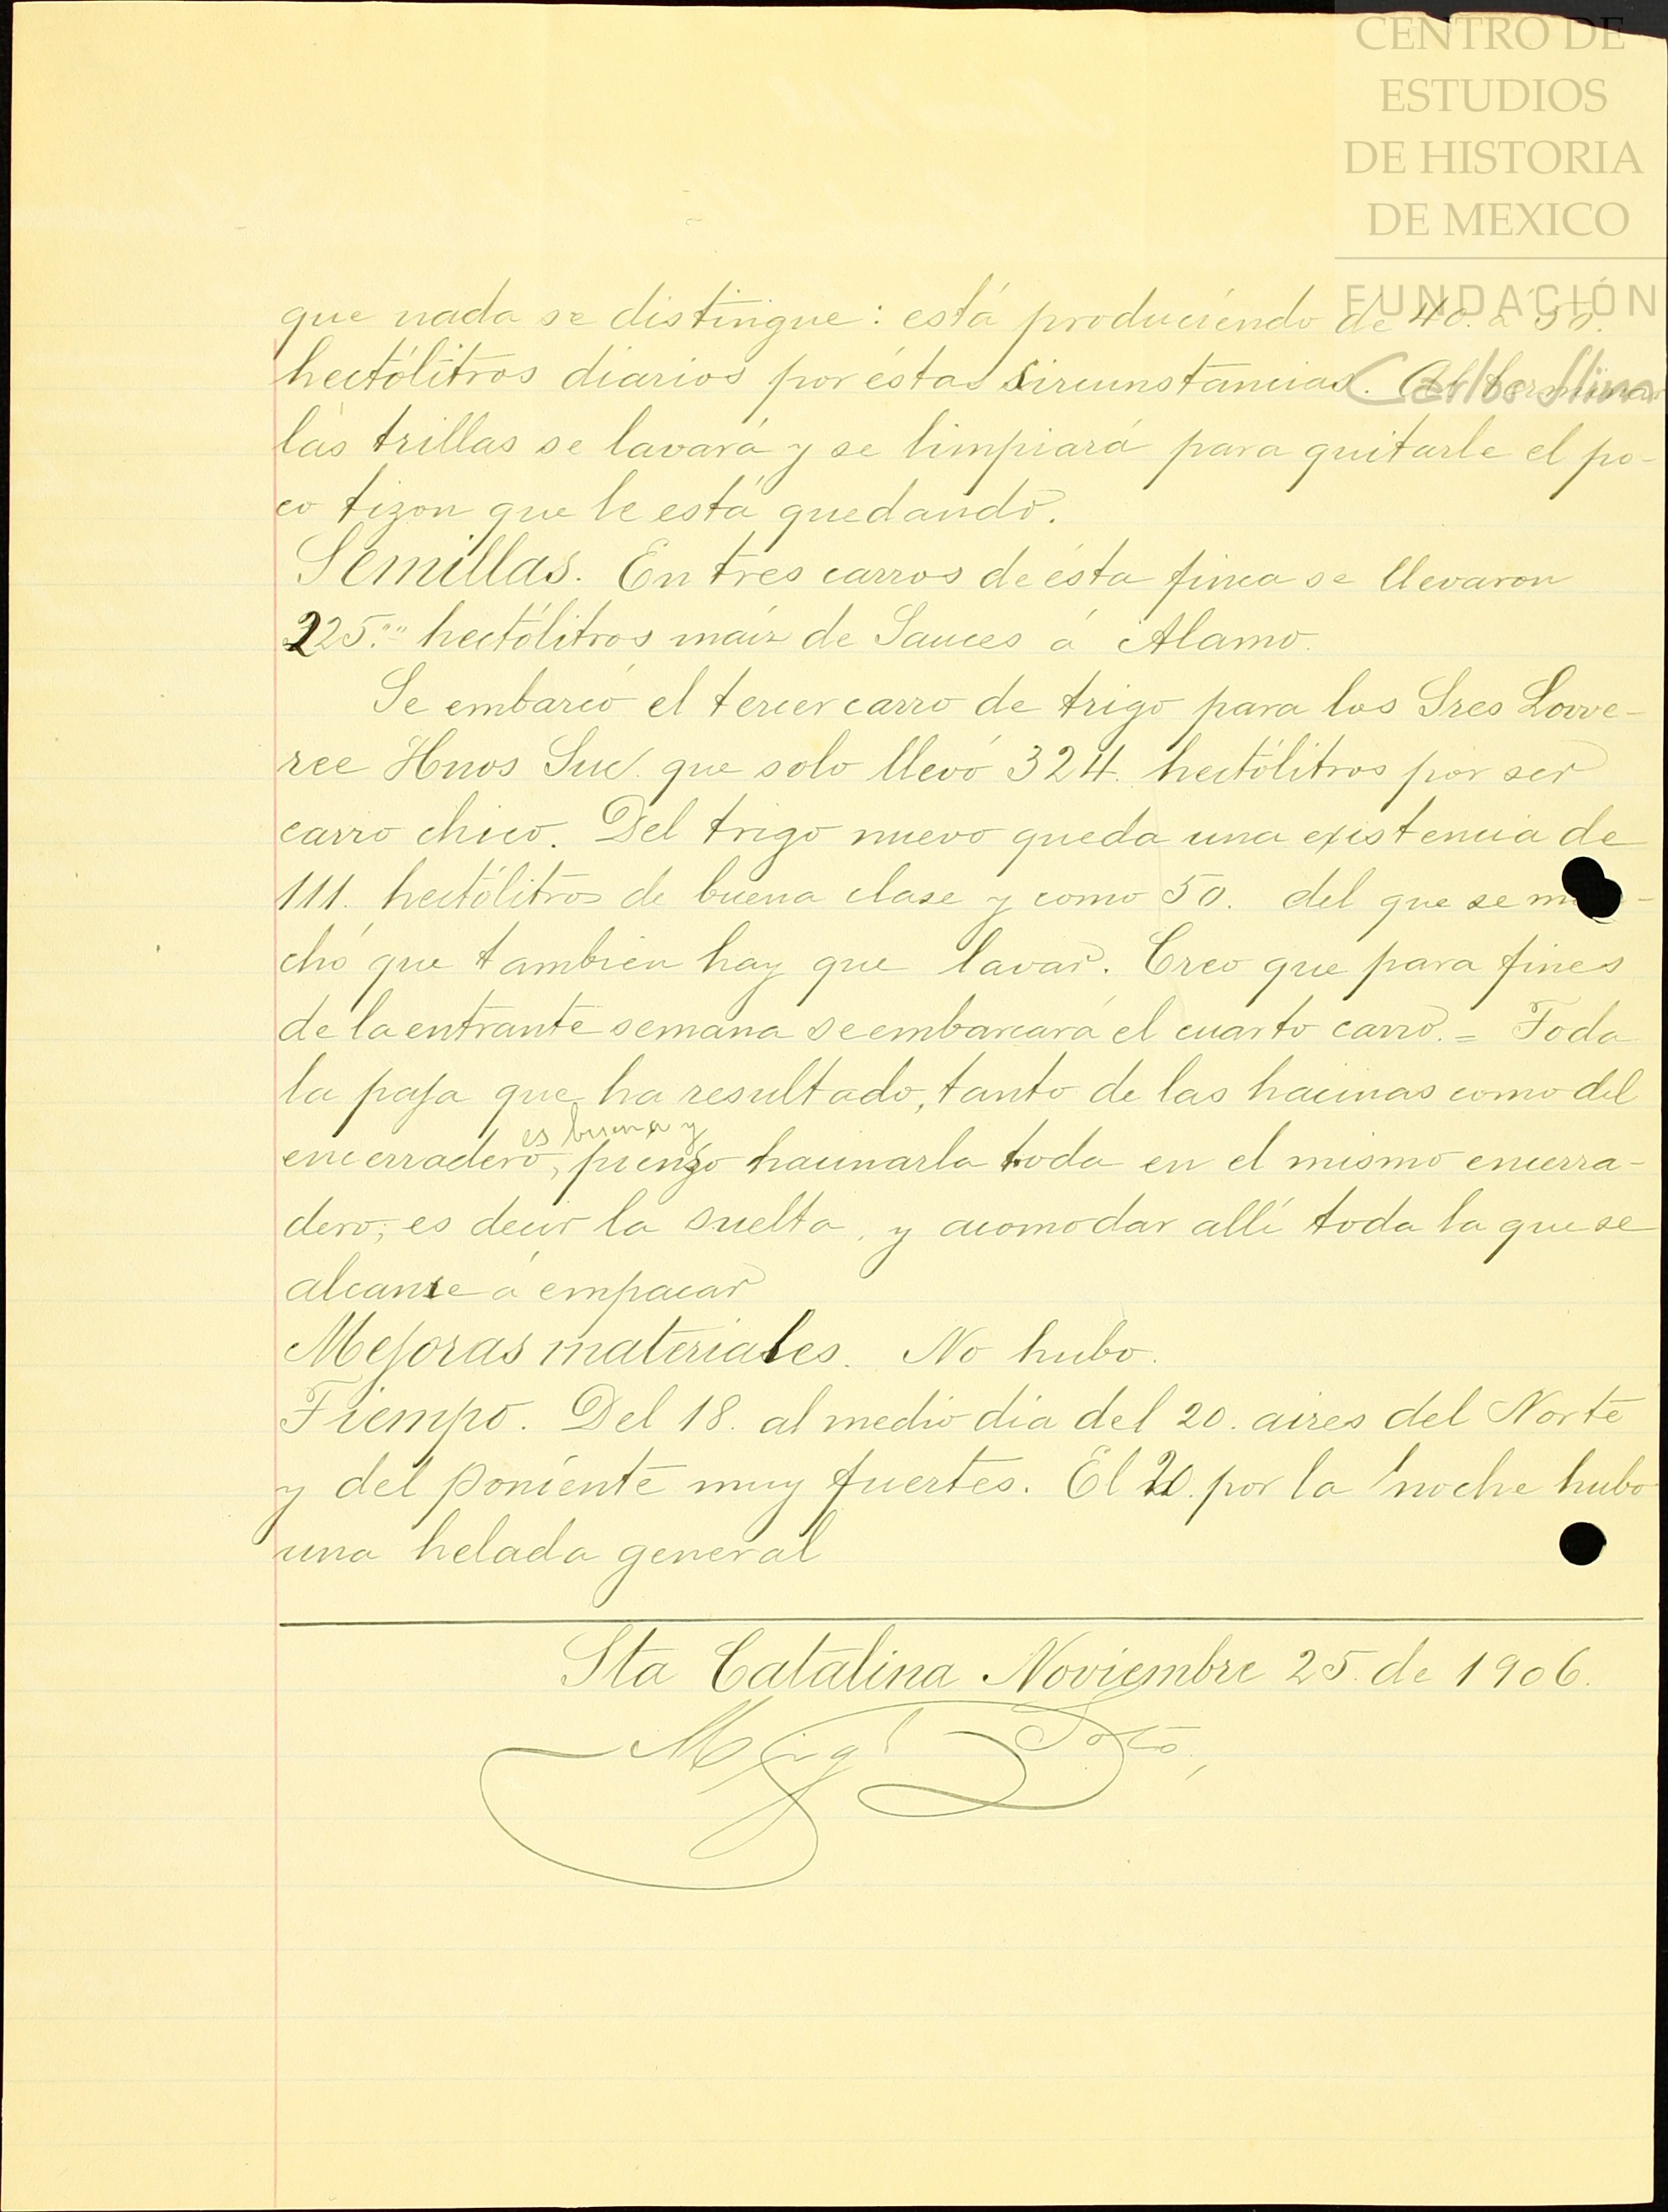 CENTRO DE
ESTUDIOS
DE HISTORIA
DE MEXICO
FUNDACIÓN
Carlos Slim
que nada se distingue: está produciendo de 40. á 50.
hectólitros diarios por éstas sircunstancias. Al terminar
las trillas se lavará y se limpiará para quitarle el po-
co tizon que le está quedando.
Semillas. En tres carros de ésta finca se llevaron
225."" hectólitros maiz de Sauces á Alamo.
Se embarcó el tercer carro de trigo para los Sres Lowe-
ree Hnos Suc. que solo llevó 324. hectólitros por ser
carro chico. Del trigo nuevo queda una existencia de
111. hectólitros de buena clase y como 50. del que se m
chó que tambien hay que lavar. Creo que para fines
de la entrante semana se embarcará el cuarto carro. = Toda
la paja que ha resultado, tanto de las hacinas como del
es buena y
encerradero, pienso hacinarla toda en el mismo encerra-
dero; es decir la suelta, y acomodar allí toda la que se
alcanse á empacar
Mejoras materiales. No hubo.
Tiempo. Del 18. al medio dia del 20. aires del Norte
y del poniente muy fuertes. El 20. por la noche hubo
una helada general
Sta Catalina Noviembre 25. de 1906.
Migl Soto,